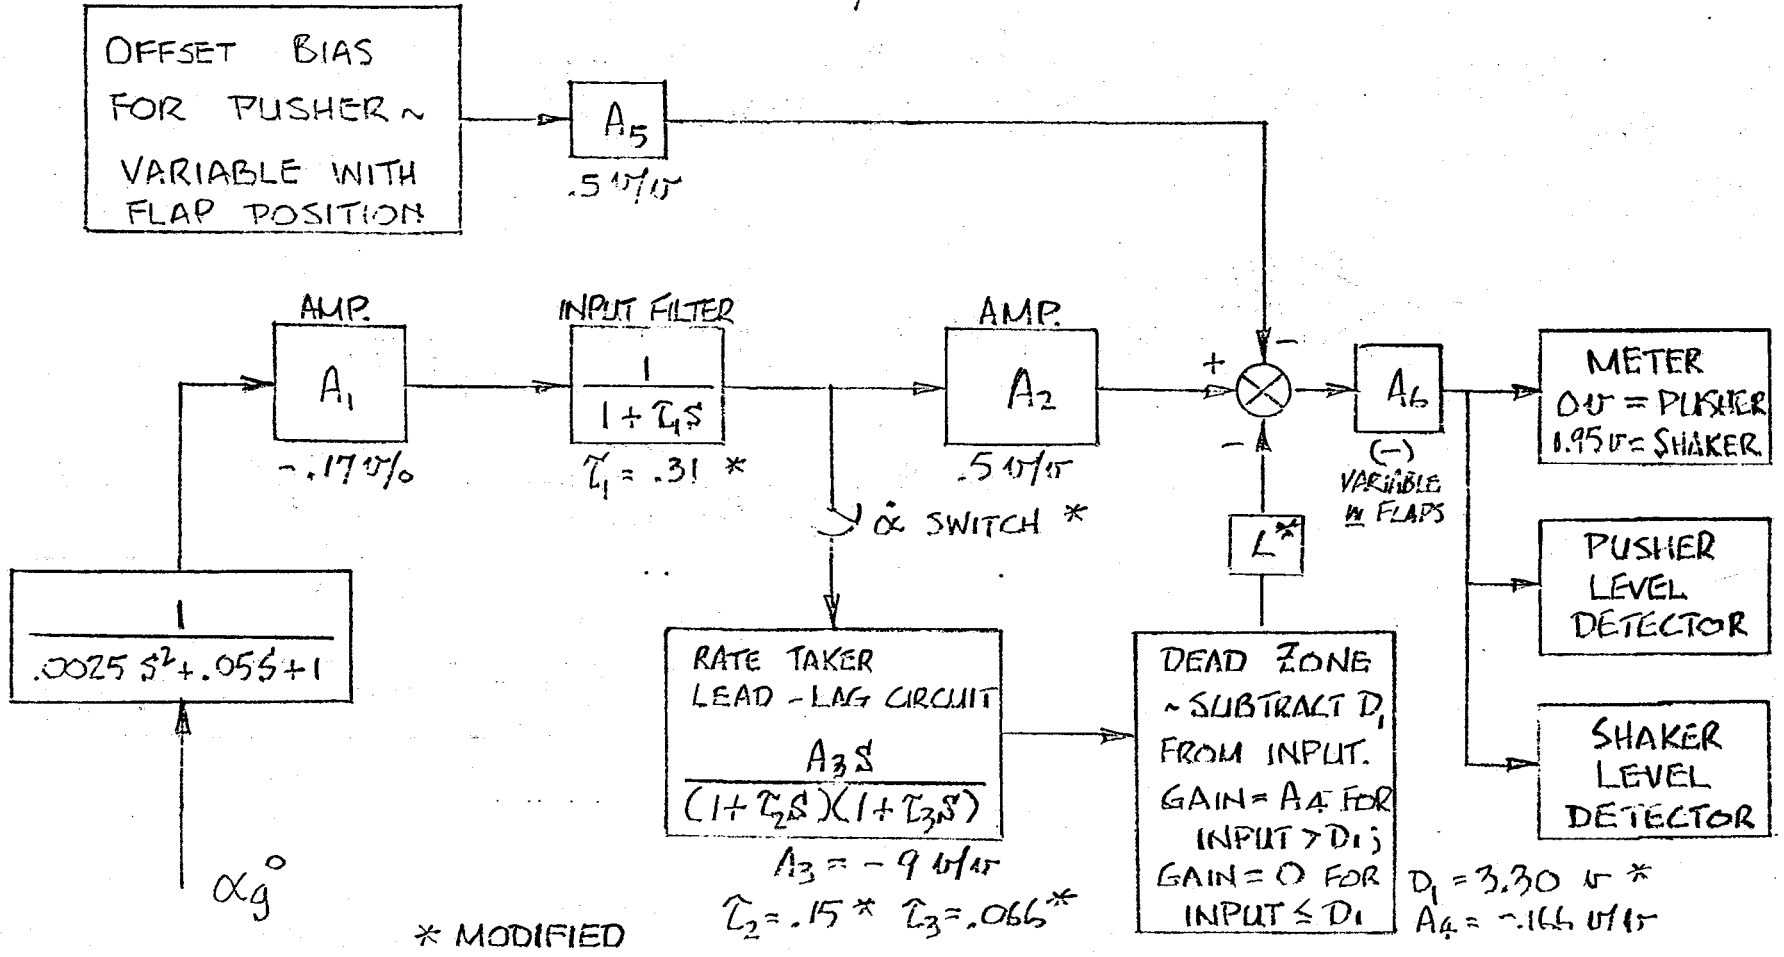 OFFSET BIAS
FOR PUSHER ~
VARIABLE WITH
FLAP POSITION
A5
.5 v/v
AMP.
A1
-.17 v/°
INPUT FILTER
1
1 + τ1S
τ1 = .31 *
AMP.
A2
.5 v/v
+
-
-
A6
(-)
VARIABLE
w FLAPS
METER
0v = PUSHER
1.95v = SHAKER
α̇ SWITCH *
L*
PUSHER
LEVEL
DETECTOR
SHAKER
LEVEL
DETECTOR
1
.0025 S² + .05S + 1
αg°
RATE TAKER
LEAD - LAG CIRCUIT
A3 S
(1 + τ2S)(1 + τ3S)
A3 = - 9 v/v
τ2 = .15 * τ3 = .066 *
DEAD ZONE
~ SUBTRACT D1
FROM INPUT.
GAIN = A4 FOR
INPUT > D1;
GAIN = 0 FOR
INPUT ≤ D1
D1 = 3.30 v *
A4 = -.166 v/v
* MODIFIED